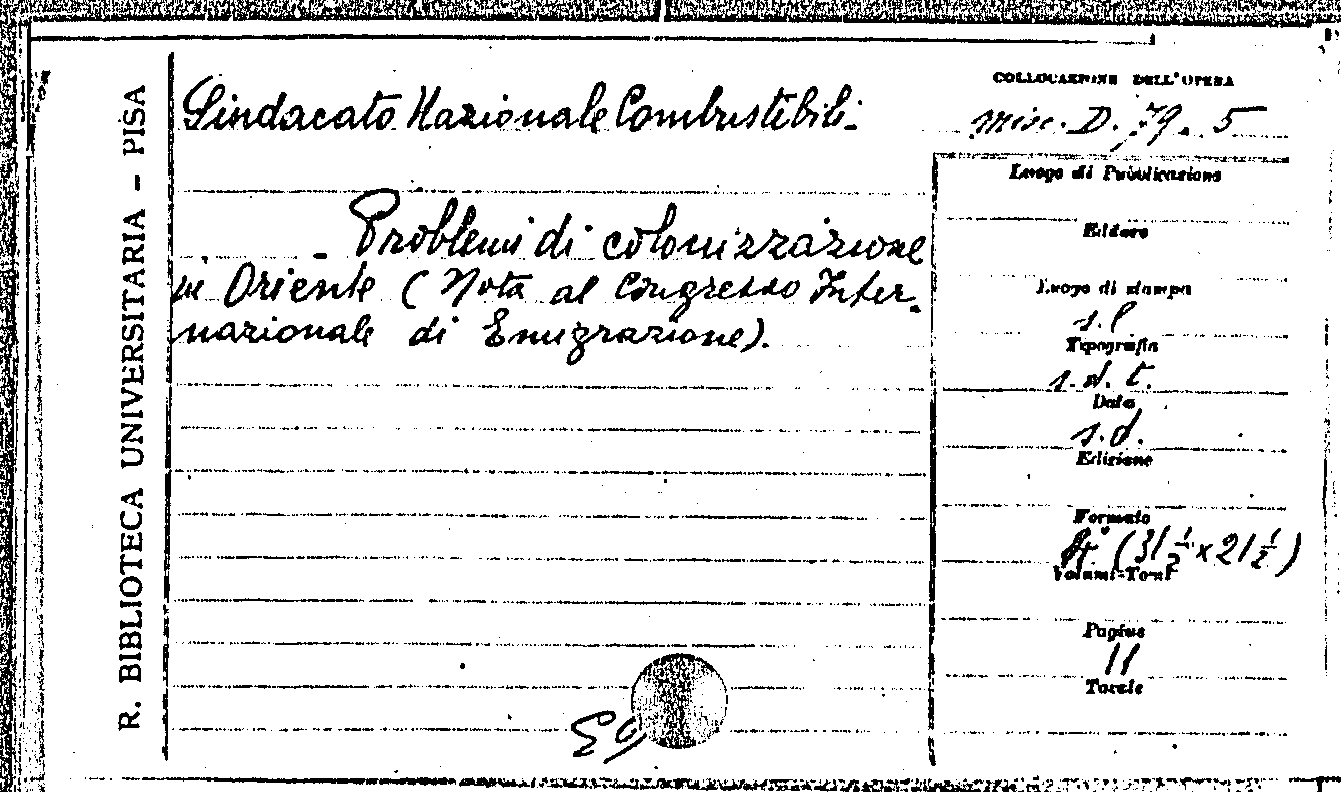 R. BIBLIOTECA UNIVERSITARIA – PISA
Sindacato Nazionale Combustibili.
- Problemi di colonizzazione
in Oriente ( Nota al Congresso Inter-
nazionale di Emigrazione).
COLLOCAZIONE DELL'OPERA
misc. D. 79. 5
Luogo di Pubblicazione
Editore
Luogo di stampa
s.l
Tipografia
s. d. t.
Data
s.d.
Edizione
Formato
4° (31 1/2 x 21 1/2)
Volumi-Tomi
Pagine
11
Tavole